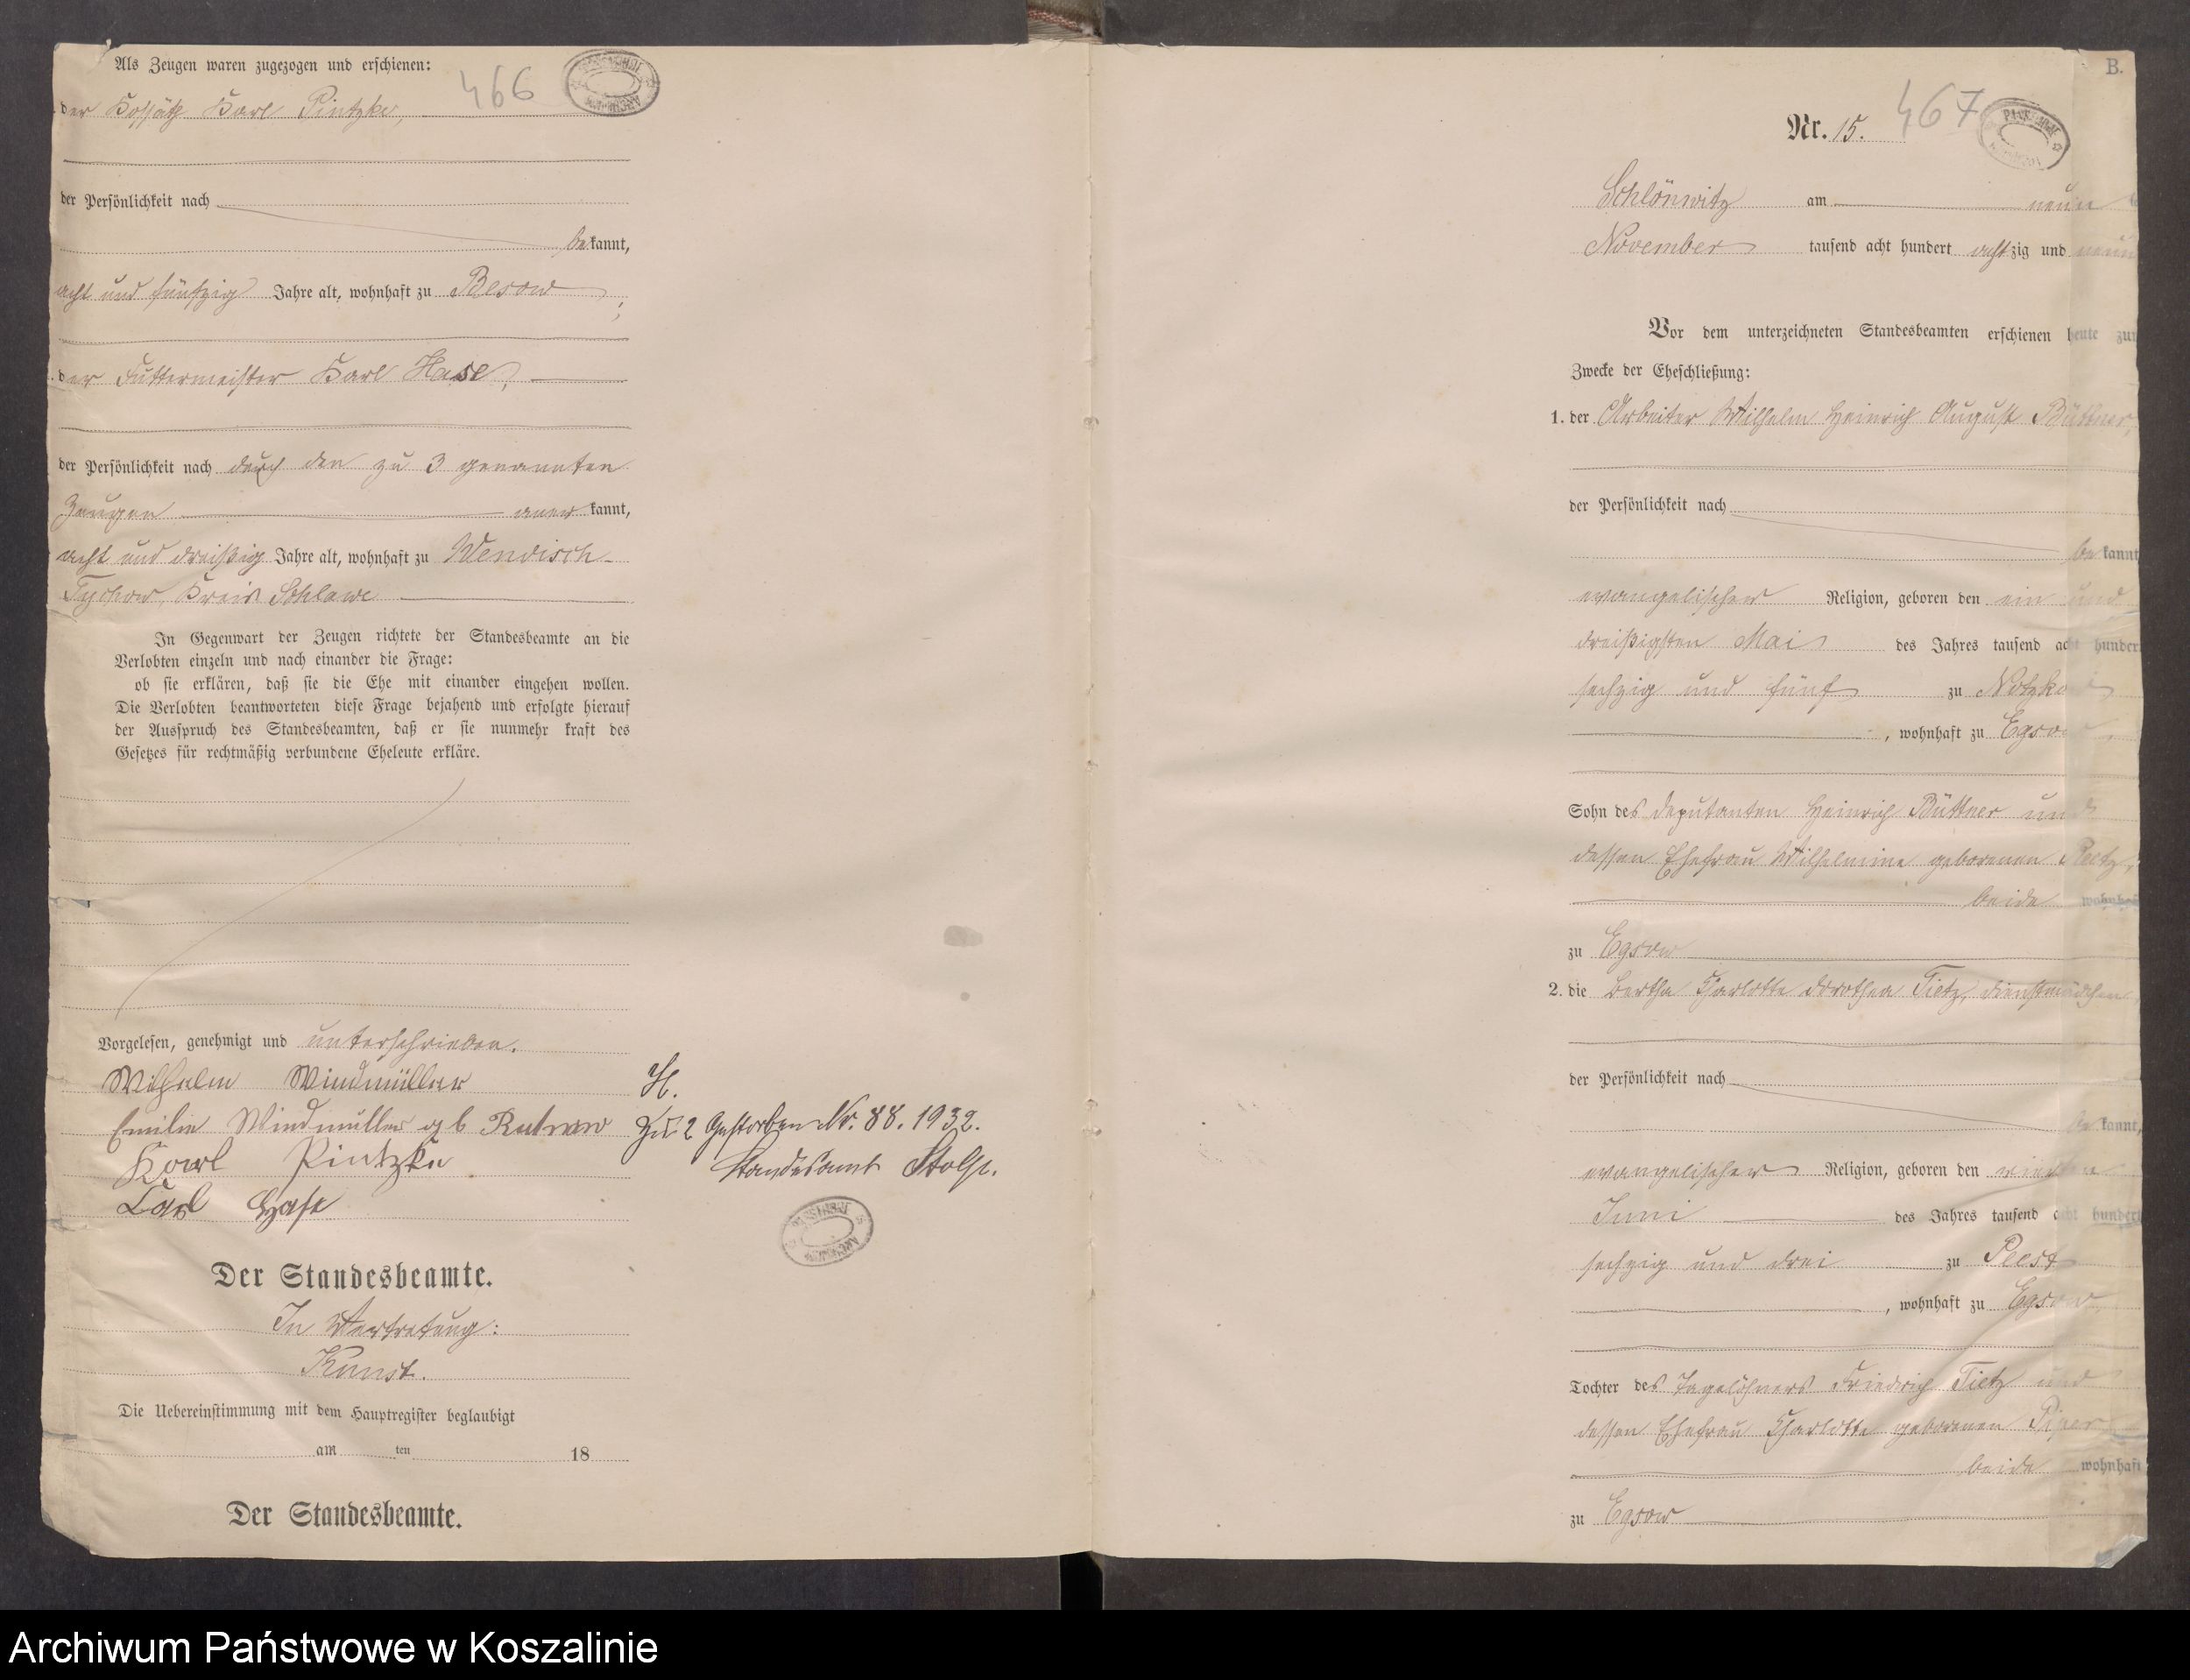 Als Zeugen waren zugezogen und erschienen:
466
der Kossäth Karl Pintzke,
der Persönlichkeit nach
bekannt,
acht und fünfzig Jahre alt, wohnhaft zu Besow;
der Futtermeister Karl Hase,
der Persönlichkeit nach durch den zu 3 genannten
Zeugen anerkannt,
acht und dreißig Jahre alt, wohnhaft zu Wendisch-
Tychow, Kreis Schlawe
In Gegenwart der Zeugen richtete der Standesbeamte an die
Verlobten einzeln und nach einander die Frage:
ob sie erklären, daß sie die Ehe mit einander eingehen wollen.
Die Verlobten beantworteten diese Frage bejahend und erfolgte hierauf
der Ausspruch des Standesbeamten, daß er sie nunmehr kraft des
Gesetzes für rechtmäßig verbundene Eheleute erkläre.
Vorgelesen, genehmigt und unterschrieben.
Wilhelm Windmüller
Emilie Windmüller gb
Karl Pintzke
Carl Hase
H.
Zu 2 Gestorben Nr. 88. 1932.
Standesamt Stolp.
Der Standesbeamte.
In Vertretung:
Kunst.
Die Uebereinstimmung mit dem Hauptregister beglaubigt
am ten 18
Der Standesbeamte.
B.
Nr. 15.
467
Schlönwitz am neun
November tausend acht hundert achtzig und neun
Vor dem unterzeichneten Standesbeamten erschienen heute zum
Zwecke der Eheschließung:
1. der Arbeiter Wilhelm Heinrich August Büttner,
der Persönlichkeit nach
bekannt
evangelischer Religion, geboren den ein und
dreißigsten Mai des Jahres tausend acht hundert
sechzig und fünf zu Notzkow
, wohnhaft zu Egsow,
Sohn des Deputanten Heinrich Büttner und
dessen Ehefrau Wilhelmine geborenen
beide wohnhaft
zu Egsow
2. die Bertha Charlotte Dorothea Tietz, Dienstmädchen
der Persönlichkeit nach
bekannt,
evangelischer Religion, geboren den vierten
Juni des Jahres tausend acht hundert
sechzig und drei zu Peest
, wohnhaft zu Egsow,
Tochter des Tagelöhners Friedrich Tietz und
dessen Ehefrau Charlotte geborenen Piper
beide wohnhaft
zu Egsow
Archiwum Państwowe w Koszalinie